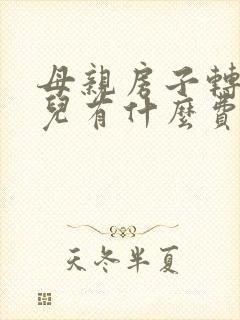 母親房子轉
兒有什麼費
天冬半夏